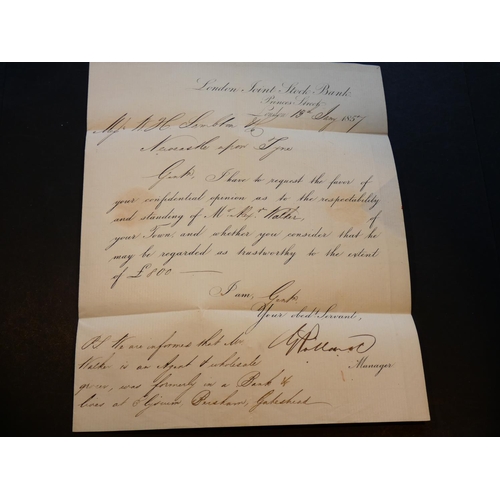 London Joint Stock Bank
Princes Street
London 13th Jany 1857
Messrs W H Lambton & Co
Newcastle upon Tyne
Gentn, I have to request the favor of
your confidential opinion as to the respectability
and standing of Mr Walker, of
your Town, and whether you consider that he
may be regarded as trustworthy to the extent
of £800
I am, Gentn
Your obedt Servant,
Manager
PS We are informed that Mr
Walker is an Agent & wholesale
grocer, was formerly in a Bank &
lives at Gateshead